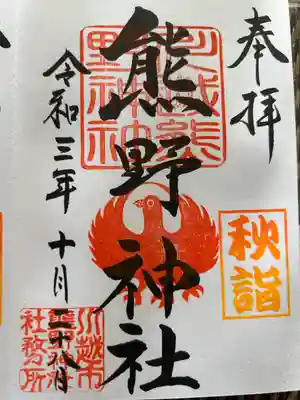 奉拝
秋詣
熊野神社
川越熊野神社
令和三年十月二十八日
川越市
熊野神社
社務所